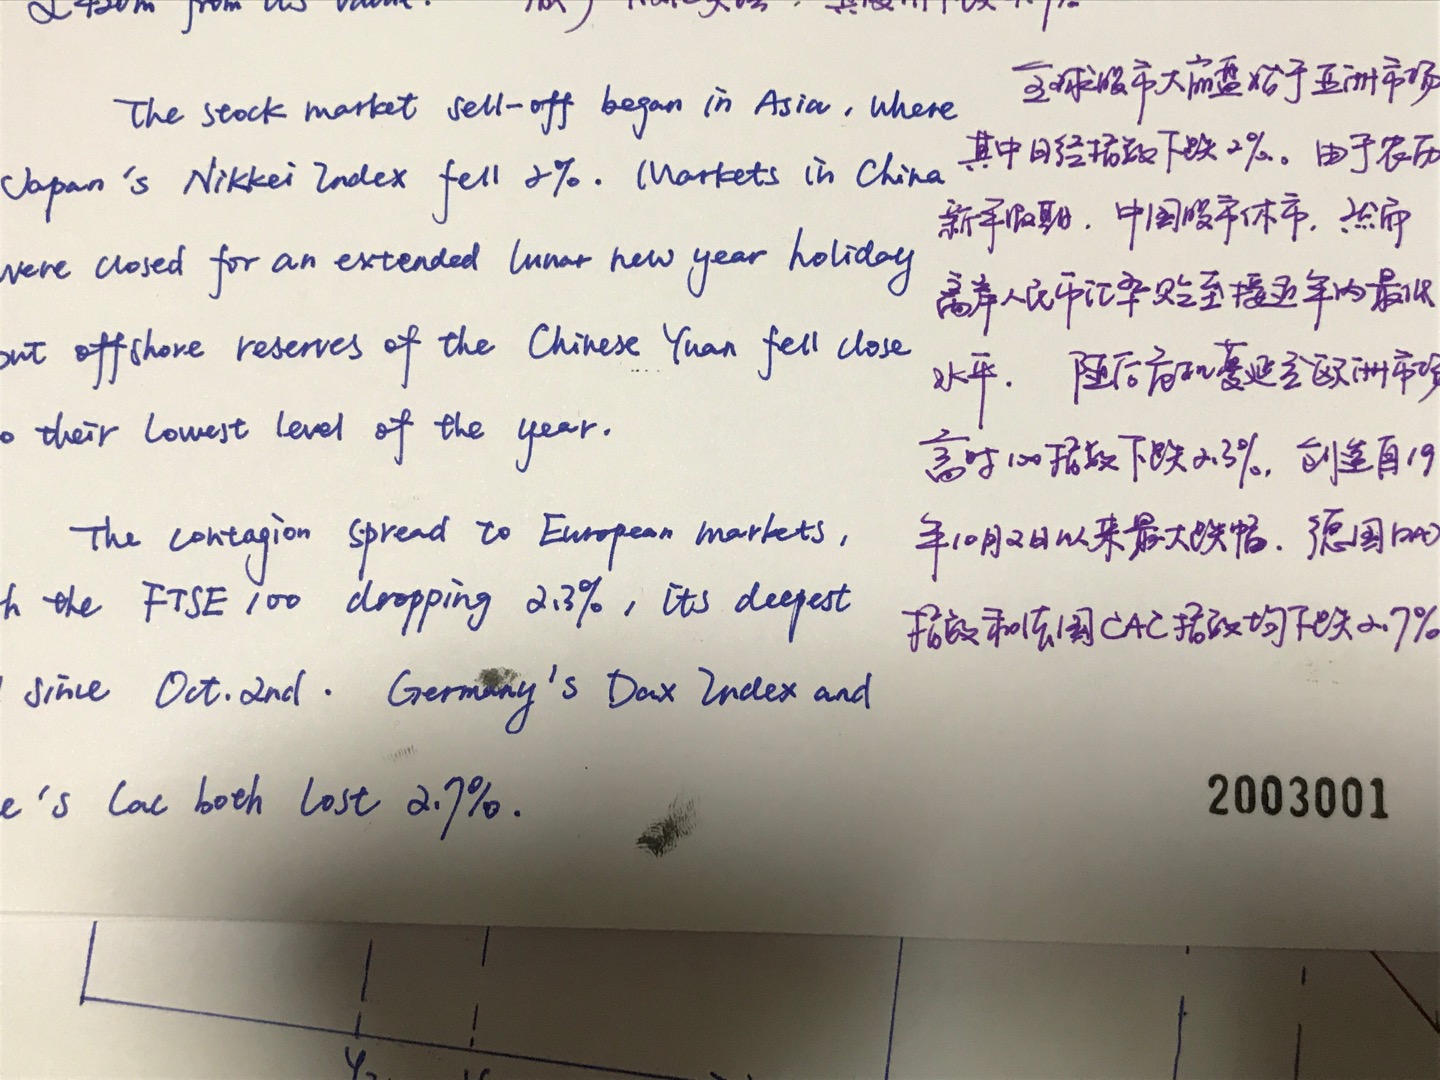 from its value.
The stock market sell-off began in Asia, where
Japan's Nikkei Index fell 2%. Markets in China
were closed for an extended lunar new year holiday
but offshore reserves of the Chinese Yuan fell close
their lowest level of the year.
The contagion spread to European markets,
the FTSE 100 dropping 2.3%, its deepest
since Oct. 2nd. Germany's Dax Index and
's Cac both lost 2.7%.
全球股市大崩盘始于亚洲市场
其中日经指数下跌2%。由于农历
新年假期,中国股市休市,然而
离岸人民币汇率贬至接近年内最低
水平. 随后蔓延至欧洲市场
富时100指数下跌2.3%,创造自19
年10月2日以来最大跌幅,德国DAX
指数和法国CAC指数均下跌2.7%
2003001